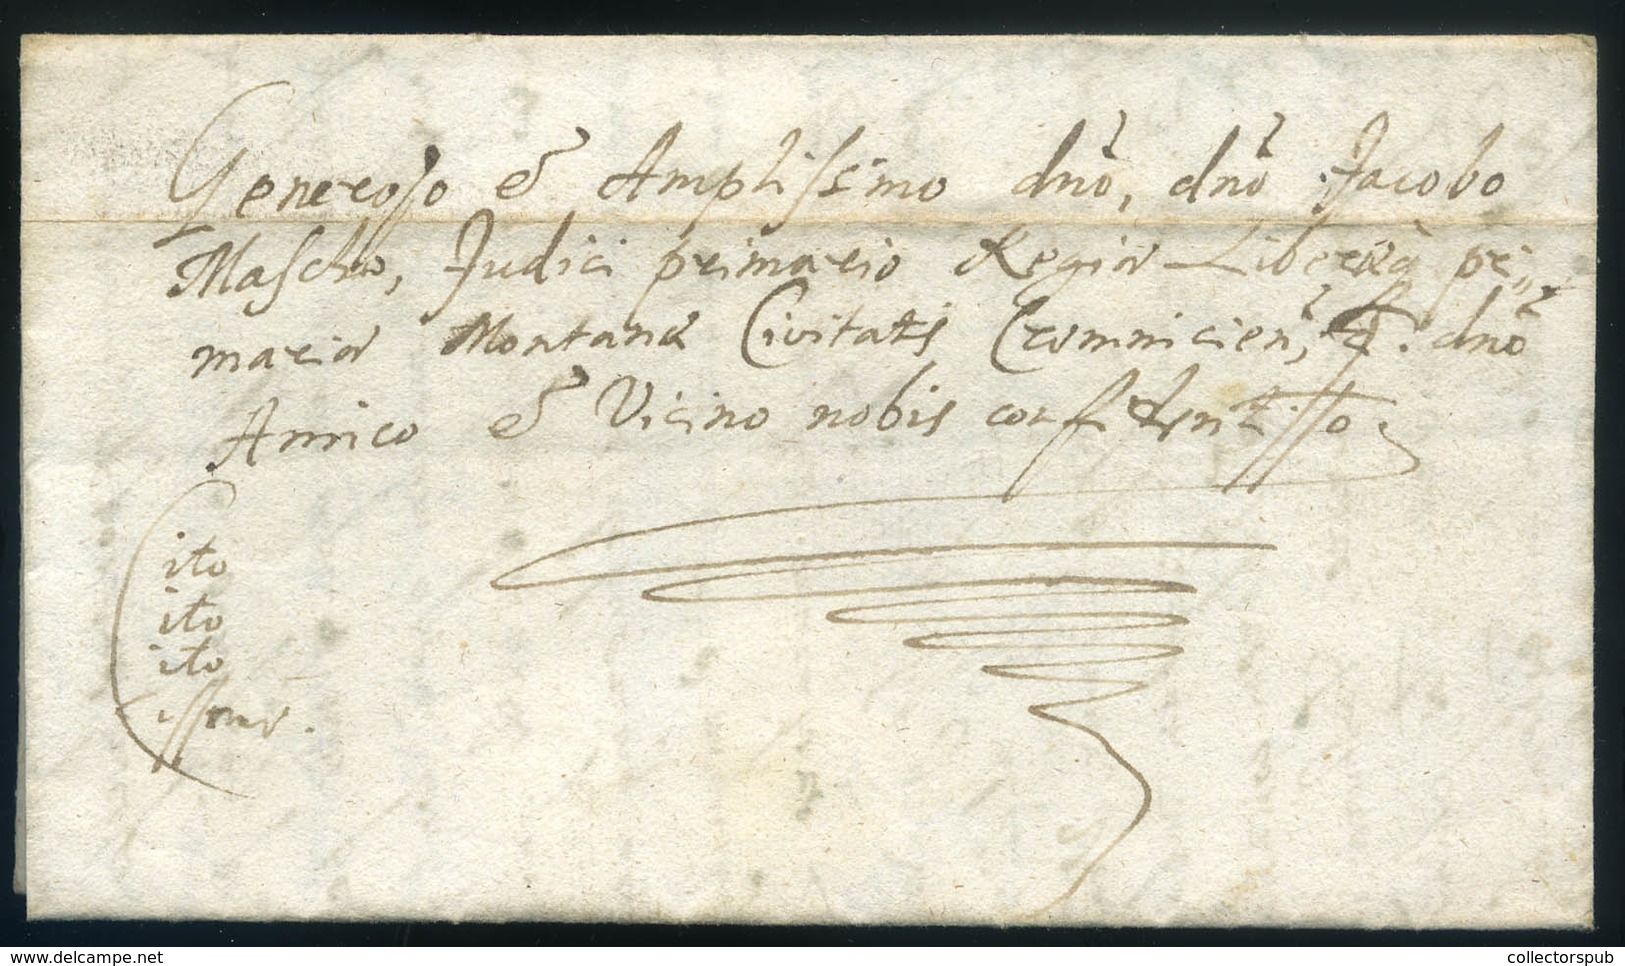 Generoso & Amplissimo dnō, dnō Jacobo
Mascho, Judici primario Regiæ Liberæq́ pri„
mariæ Montanæ Civitatis Cremnicien̄, dnō
Amico & Vicino nobis confidentisso.
Cito
ito
ito
issime.
delcampe.net
collectorspub